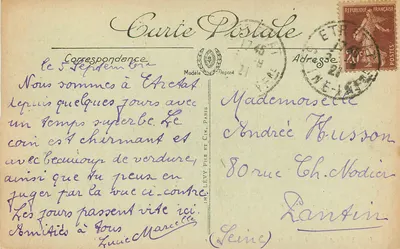 Carte Postale
Correspondance
Adresse
le 5 Septembre
Nous sommes à Etretat
depuis quelques jours avec
un temps superbe. Le
coin est charmant et
avec beaucoup de verdure,
ainsi que tu peux en
juger par la vue ci-contre
Les jours passent vite ici.
Amitiés à tous
Marcelle
LÉVY FILS ET CIE, PARIS
Mademoiselle
Andrée Husson
80 rue Ch. Nodier
Pantin
(Seine)